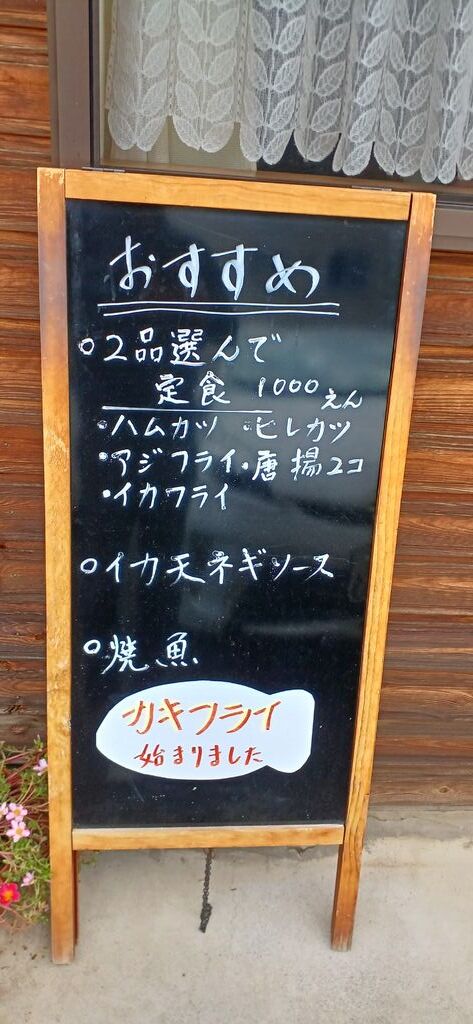 おすすめ
○2品選んで
定食 1000えん
・ハムカツ ・ヒレカツ
・アジフライ・唐揚2コ
・イカフライ
○イカ天ネギソース
○焼魚
カキフライ
始まりました